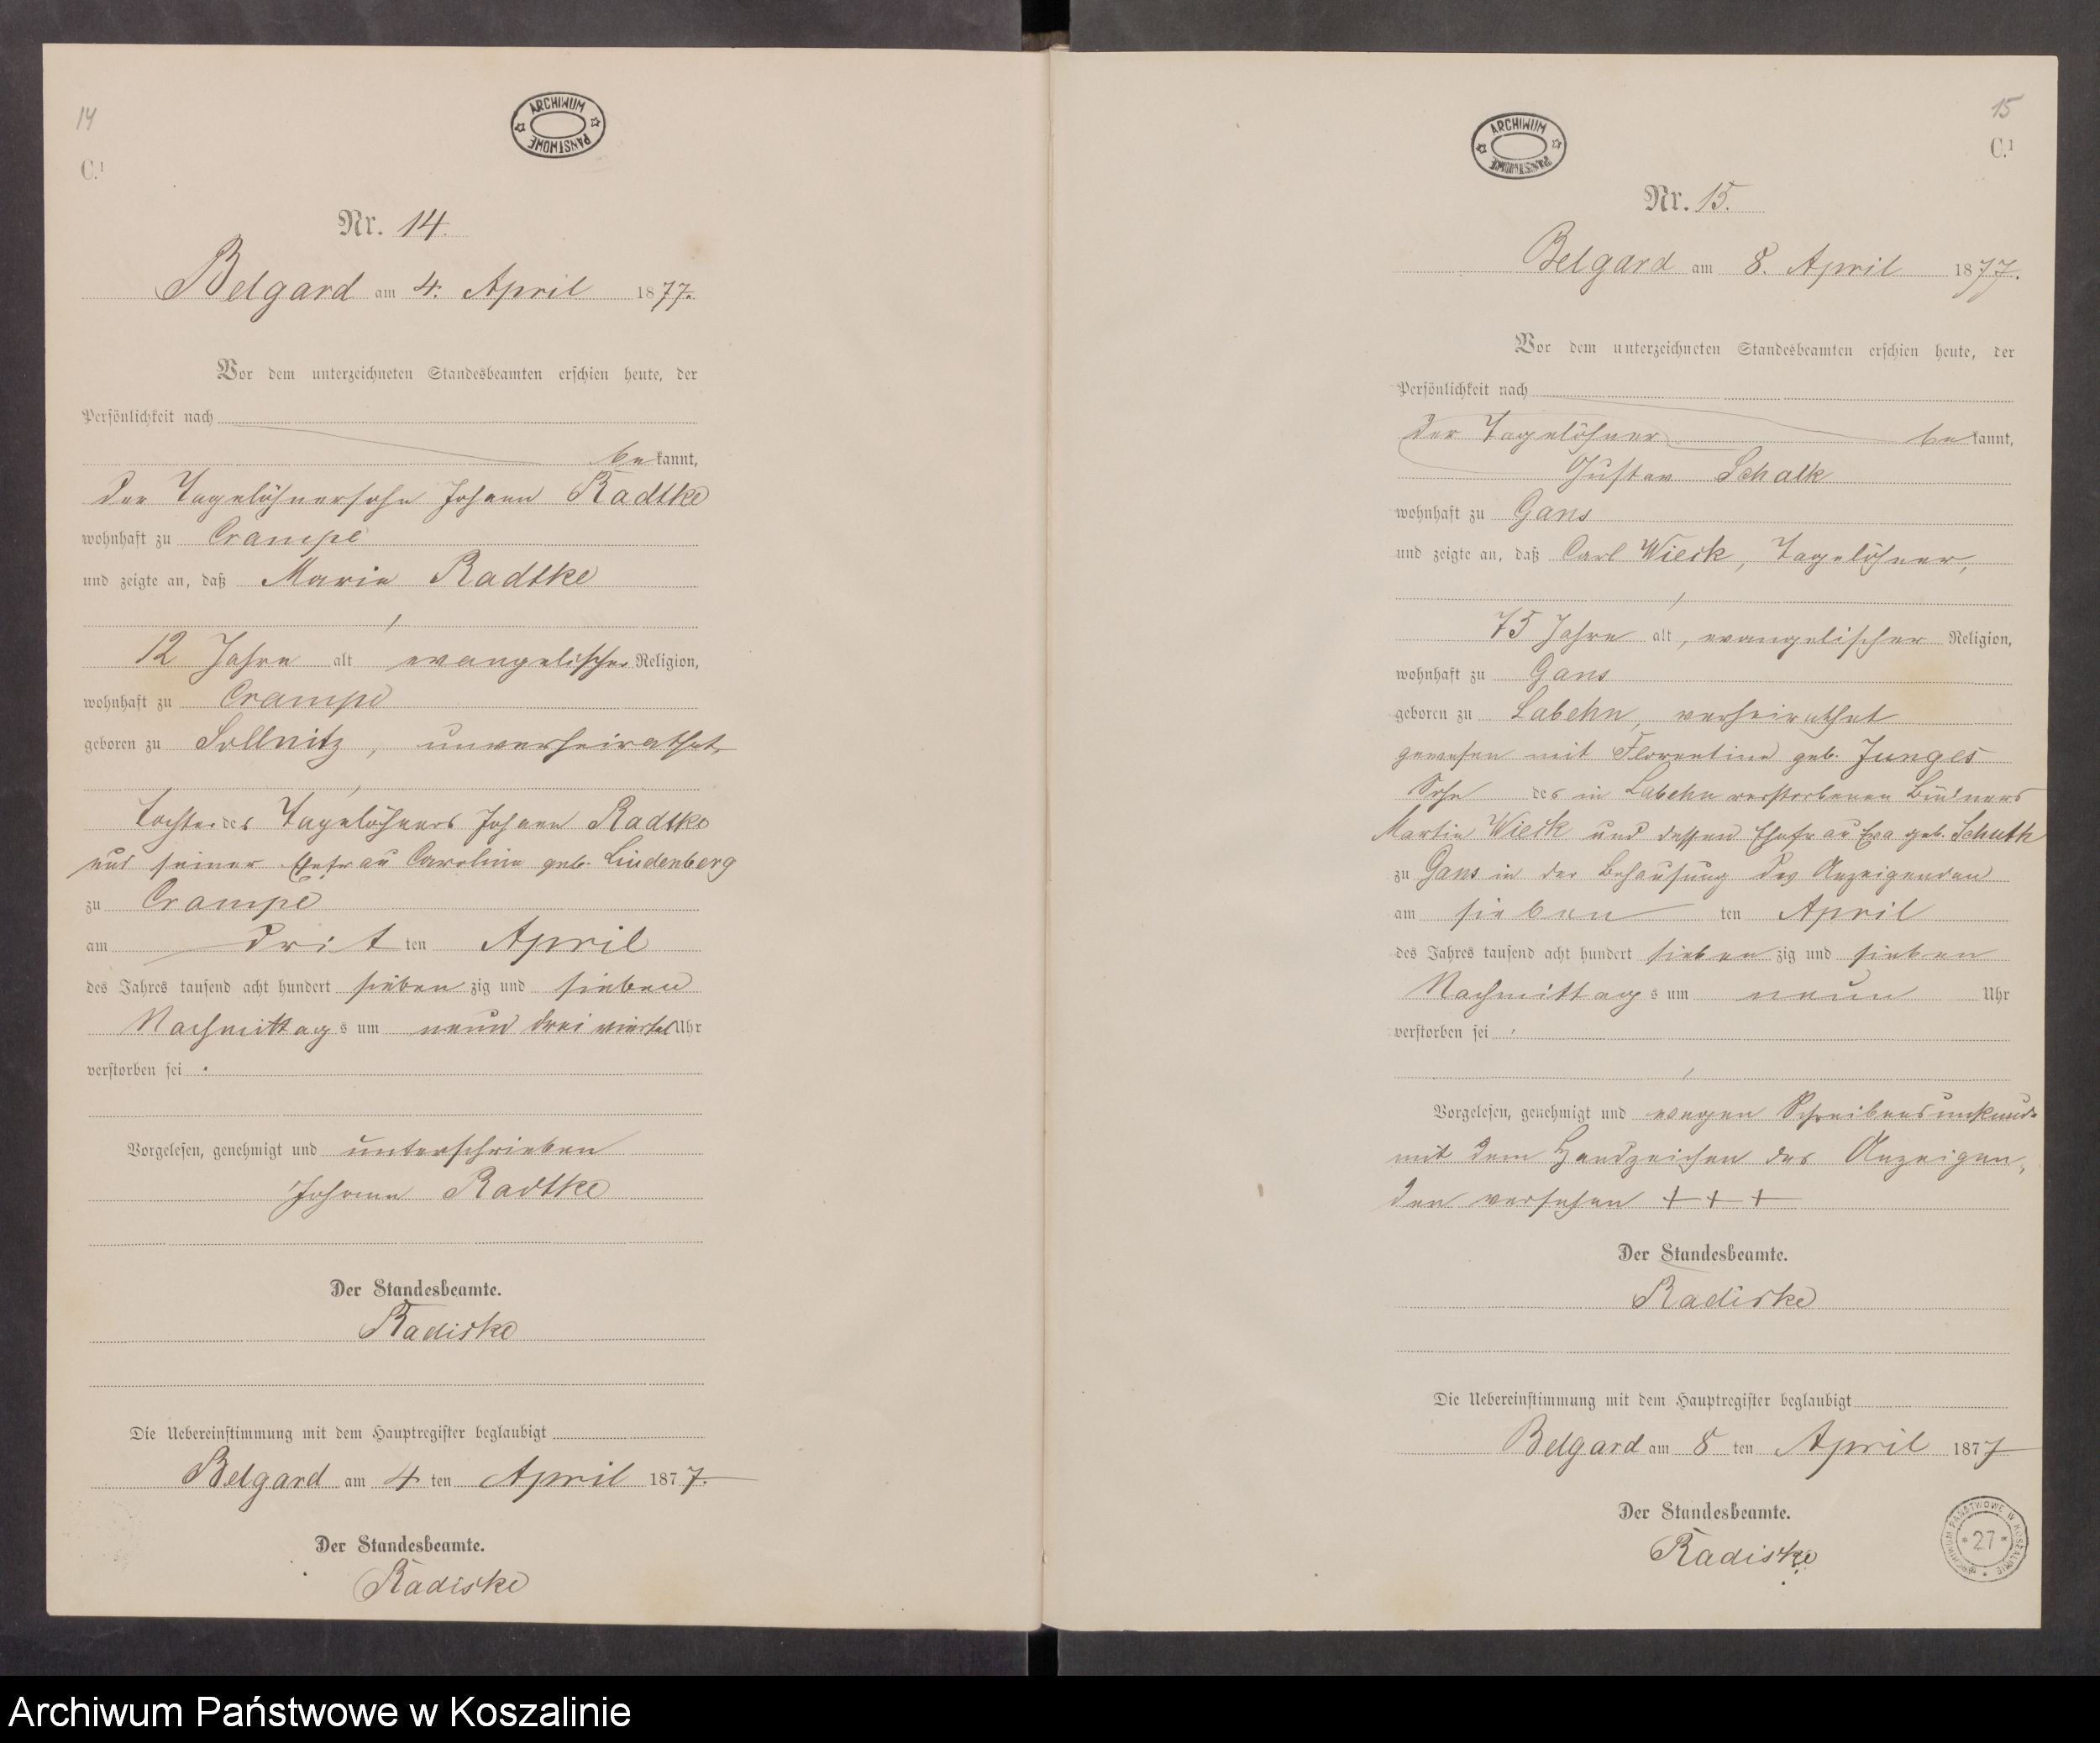 14
C.¹
ARCHIWUM PAŃSTWOWE
Nr. 14.
Belgard am 4. April 1877.
Vor dem unterzeichneten Standesbeamten erschien heute, der
Persönlichkeit nach
bekannt,
der Tagelöhnersohn Johann Radtke
wohnhaft zu Crampe
und zeigte an, daß Marie Radtke
12 Jahre alt evangelischer Religion,
wohnhaft zu Crampe
geboren zu Sollnitz, unverheirathet
Tochter des Tagelöhners Johann Radtke
und seiner Ehefrau Caroline geb. Lindenberg
zu Crampe
am dritten April
des Jahres tausend acht hundert siebenzig und sieben
Nachmittags um neun drei viertel Uhr
verstorben sei.
Vorgelesen, genehmigt und unterschrieben
Johann Radtke
Der Standesbeamte.
Radiske
Die Uebereinstimmung mit dem Hauptregister beglaubigt
Belgard am 4ten April 1877.
Der Standesbeamte.
Radiske
15
C.¹
ARCHIWUM PAŃSTWOWE
Nr. 15.
Belgard am 8. April 1877.
Vor dem unterzeichneten Standesbeamten erschien heute, der
Persönlichkeit nach
der Tagelöhner bekannt,
Gustav Schalk
wohnhaft zu Gans
und zeigte an, daß Carl Wieck, Tagelöhner,
75 Jahre alt, evangelischer Religion,
wohnhaft zu Gans
geboren zu Labehn, verheirathet
gewesen mit Florentine geb. Junges
Sohn des in Labehn verstorbenen Büdners
Martin Wieck und dessen Ehefrau Eva geb. Schuth
zu Gans in der Behausung des Anzeigenden
am siebenten April
des Jahres tausend acht hundert siebenzig und sieben
Nachmittags um neun Uhr
verstorben sei.
Vorgelesen, genehmigt und wegen Schreibensunkunde
mit dem Handzeichen des Anzeigen-
den versehen + + +
Der Standesbeamte.
Radiske
Die Uebereinstimmung mit dem Hauptregister beglaubigt
Belgard am 8ten April 1877
Der Standesbeamte.
Radiske
ARCHIWUM PAŃSTWOWE W KOSZALINIE
* 27 *
Archiwum Państwowe w Koszalinie